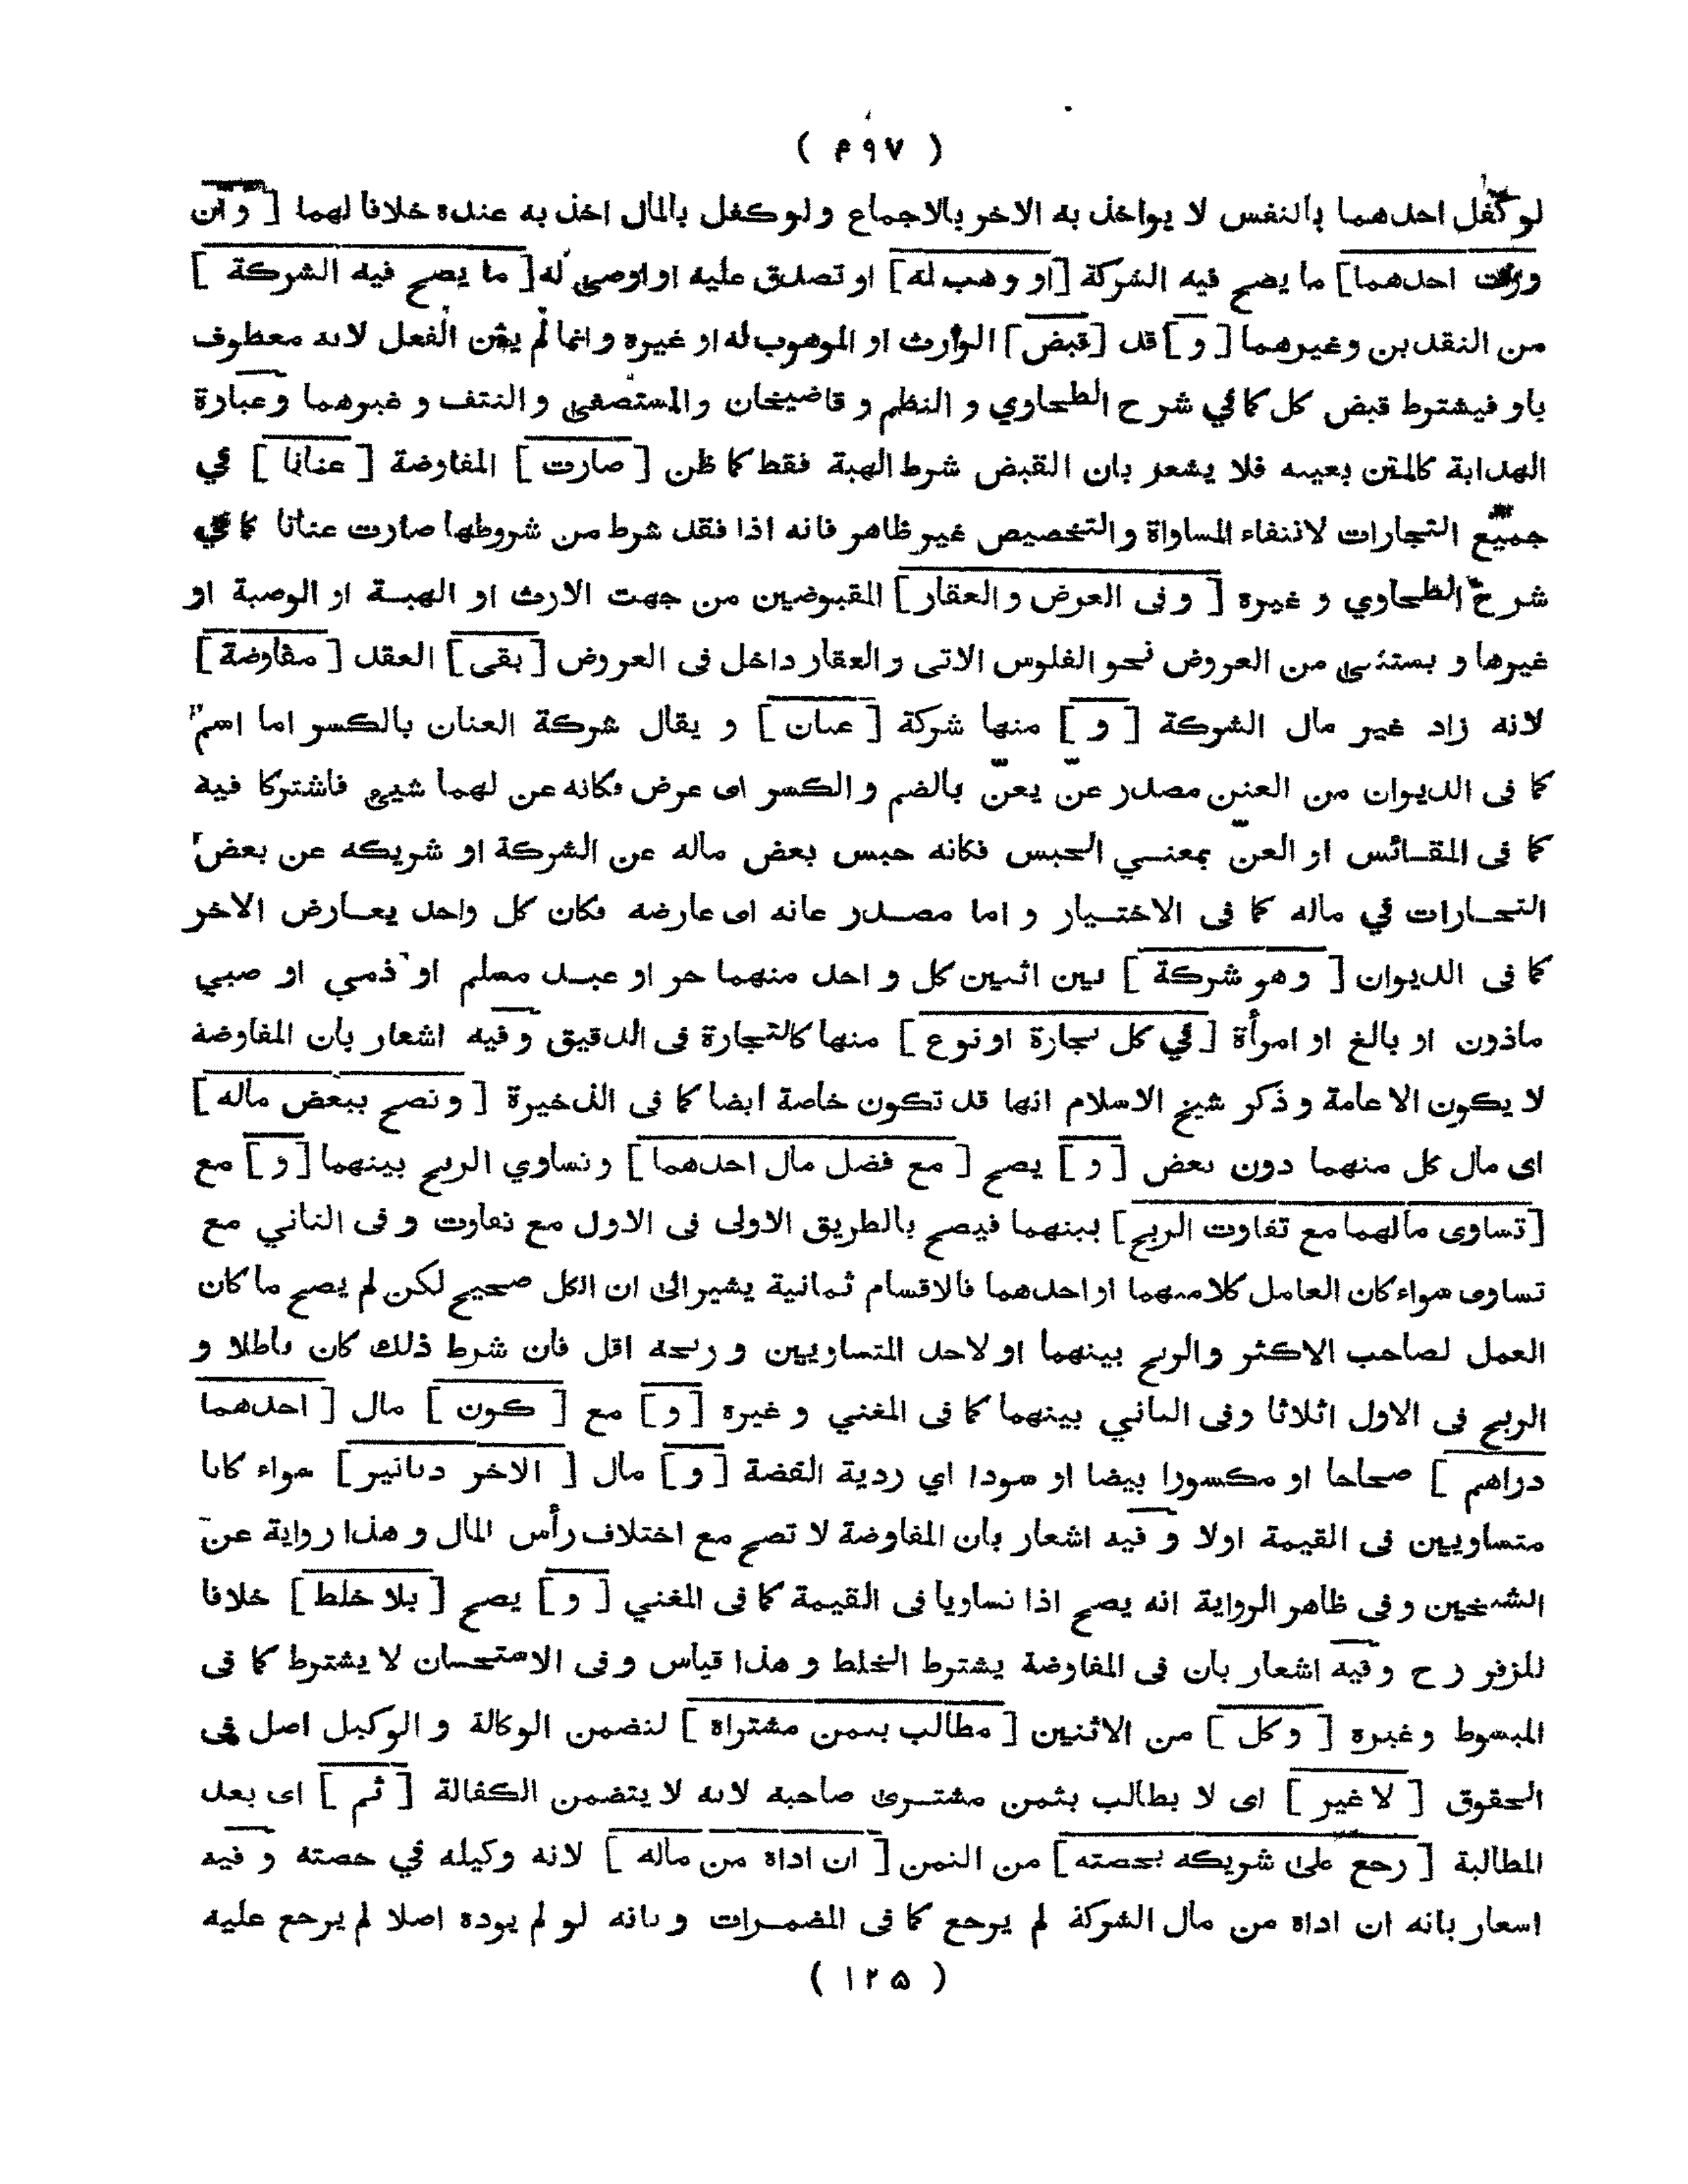 ( ۴۹۷ )
لو كفل احدهما بالنفس لا يواخذ به الاخر بالاجماع ولو كفل بالمال اخذ به عنده خلافا لهما [ و ان
ورث احدهما ] ما يصح فيه الشركة [ او وهب له ] او تصدق عليه او اوصى له [ ما يصح فيه الشركة ]
من النقدين وغيرهما [ و ] قد [ قبض ] الوارث او الموهوب له او غيره وانما لم يثن الفعل لانه معطوف
باو فيشترط قبض كل كما في شرح الطحاوي و النظم و قاضيخان والمستصفى و النتف و غيرهما وعبارة
الهداية كالمتن بعينه فلا يشعر بان القبض شرط الهبة فقط كما ظن [ صارت ] المفاوضة [ عنانا ] في
جميع التجارات لانتفاء المساواة والتخصيص غير ظاهر فانه اذا فقد شرط من شروطها صارت عنانا كما في
شرح الطحاوي و غيره [ وفى العرض و العقار ] المقبوضين من جهت الارث او الهبة او الوصية او
غيرها و يستثنى من العروض نحو الفلوس الاتى و العقار داخل فى العروض [ بقى ] العقد [ مفاوضة ]
لانه زاد غير مال الشركة [ و ] منها شركة [ عنان ] و يقال شركة العنان بالكسر اما اسم
كما فى الديوان من العنن مصدر عن يعن بالضم و الكسر اى عرض فكانه عن لهما شيء فاشتركا فيه
كما فى المقائس او العن بمعنى الحبس فكانه حبس بعض ماله عن الشركة او شريكه عن بعض
التجارات في ماله كما فى الاختيار و اما مصدر عانه اى عارضه فكان كل واحد يعارض الاخر
كما فى الديوان [ وهو شركة ] بين اثنين كل و احد منهما حر او عبد مسلم او ذمي او صبي
ماذون او بالغ او امرأة [ في كل تجارة او نوع ] منها كالتجارة فى الدقيق و فيه اشعار بان المفاوضة
لا يكون الا عامة و ذكر شيخ الاسلام انها قد تكون خاصة ايضا كما فى الذخيرة [ و تصح ببعض ماله ]
اى مال كل منهما دون بعض [ و ] يصح [ مع فضل مال احدهما ] و تساوي الربح بينهما [ و ] مع
[ تساوى مالهما مع تفاوت الربح ] بينهما فيصح بالطريق الاولى فى الاول مع تفاوت و فى الثاني مع
تساوى سواء كان العامل كلا منهما او احدهما فالاقسام ثمانية يشير الى ان الكل صحيح لكن لم يصح ما كان
العمل لصاحب الاكثر والربح بينهما او لاحد المتساويين و ربحه اقل فان شرط ذلك كان باطلا و
الربح فى الاول اثلاثا وفى الثاني بينهما كما فى المغني و غيره [ و ] مع [ كون ] مال [ احدهما
دراهم ] صحاحا او مكسورا بيضا او سودا اي ردية الفضة [ و ] مال [ الاخر دنانير ] سواء كانا
متساويين فى القيمة اولا و فيه اشعار بان المفاوضة لا تصح مع اختلاف رأس المال و هذا رواية عن
الشيخين و فى ظاهر الرواية انه يصح اذا تساويا فى القيمة كما فى المغني [ و ] يصح [ بلا خلط ] خلافا
للزفر ر ح و فيه اشعار بان فى المفاوضة يشترط الخلط و هذا قياس و فى الاستحسان لا يشترط كما فى
المبسوط وغيره [ و كل ] من الاثنين [ مطالب بثمن مشتراه ] لتضمن الوكالة و الوكيل اصل في
الحقوق [ لا غير ] اى لا يطالب بثمن مشترى صاحبه لانه لا يتضمن الكفالة [ ثم ] اى بعد
المطالبة [ رجع على شريكه بحصته ] من الثمن [ ان اداه من ماله ] لانه وكيله في حصته و فيه
اشعار بانه ان اداه من مال الشركة لم يرجع كما فى المضمرات و بانه لو لم يوده اصلا لم يرجع عليه
( ۱۲۵ )